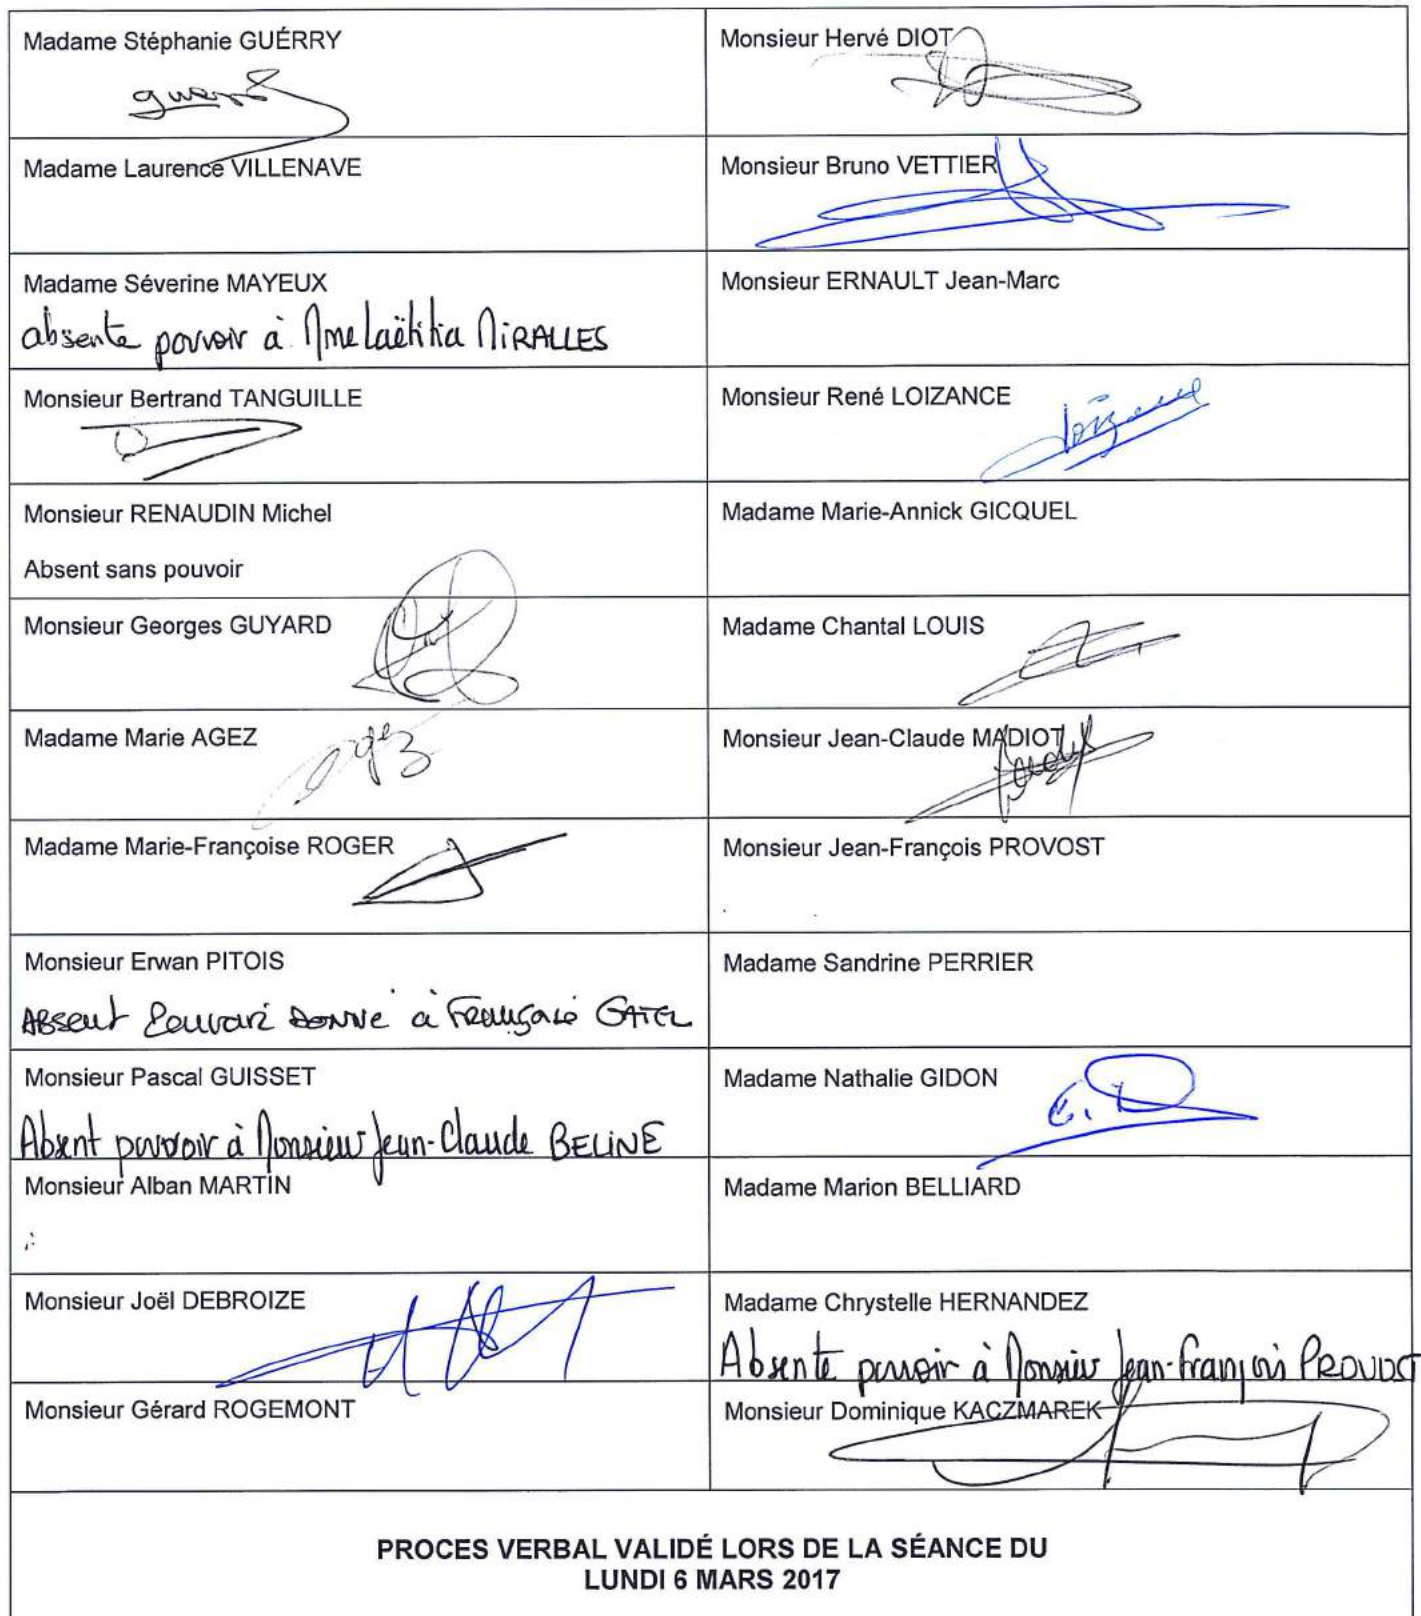 Madame Stéphanie GUÉRRY
Monsieur Hervé DIOT
Madame Laurence VILLENAVE
Monsieur Bruno VETTIER
Madame Séverine MAYEUX
absente pouvoir à Mme Laëtitia MIRALLES
Monsieur ERNAULT Jean-Marc
Monsieur Bertrand TANGUILLE
Monsieur René LOIZANCE
Loizance
Monsieur RENAUDIN Michel
Absent sans pouvoir
Madame Marie-Annick GICQUEL
Monsieur Georges GUYARD
Madame Chantal LOUIS
Madame Marie AGEZ
Agez
Monsieur Jean-Claude MADIOT
Madame Marie-Françoise ROGER
Monsieur Jean-François PROVOST
Monsieur Erwan PITOIS
ABSENT Pouvoir DONNÉ à Françoise GATEL
Madame Sandrine PERRIER
Monsieur Pascal GUISSET
Absent pouvoir à Monsieur Jean-Claude BELINE
Madame Nathalie GIDON
Monsieur Alban MARTIN
Madame Marion BELLIARD
Monsieur Joël DEBROIZE
Madame Chrystelle HERNANDEZ
Absente pouvoir à Monsieur Jean-François PROVOST
Monsieur Gérard ROGEMONT
Monsieur Dominique KACZMAREK
PROCES VERBAL VALIDÉ LORS DE LA SÉANCE DU
LUNDI 6 MARS 2017